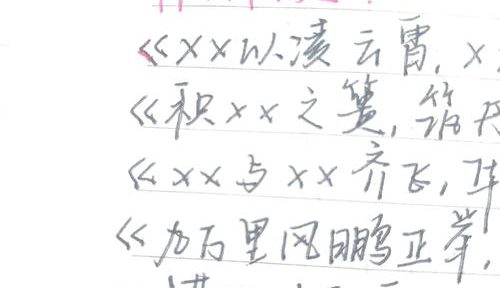 《××以凌云霄,×
《积××之篑,筑
《××与××齐飞,
《九万里风鹏正举,